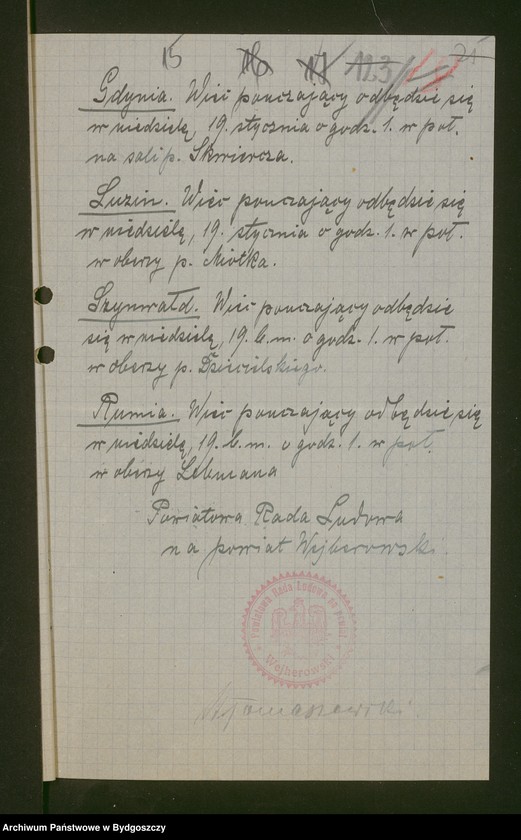 15 16 17 123 75
Gdynia. Wiec pouczający odbędzie się
w niedzielę, 19. stycznia o godz. 1. w poł.
na sali p. Skwiercza.
Luzin. Wiec pouczający odbędzie się
w niedzielę, 19. stycznia o godz. 1. w poł.
w oberzy p. Miotka.
Szynwałd. Wiec pouczający odbędzie
się w niedzielę, 19. b. m. o godz. 1. w poł.
w oberzy p. Dzięcielskiego.
Rumia. Wiec pouczający odbędzie się
w niedzielę, 19. b. m. o godz. 1. w poł.
w oberzy Lebmana
Powiatowa Rada Ludowa
na powiat Wejherowski.
Powiatowa Rada Ludowa na Powiat
Wejherowski
Tomaszewski
Archiwum Państwowe w Bydgoszczy